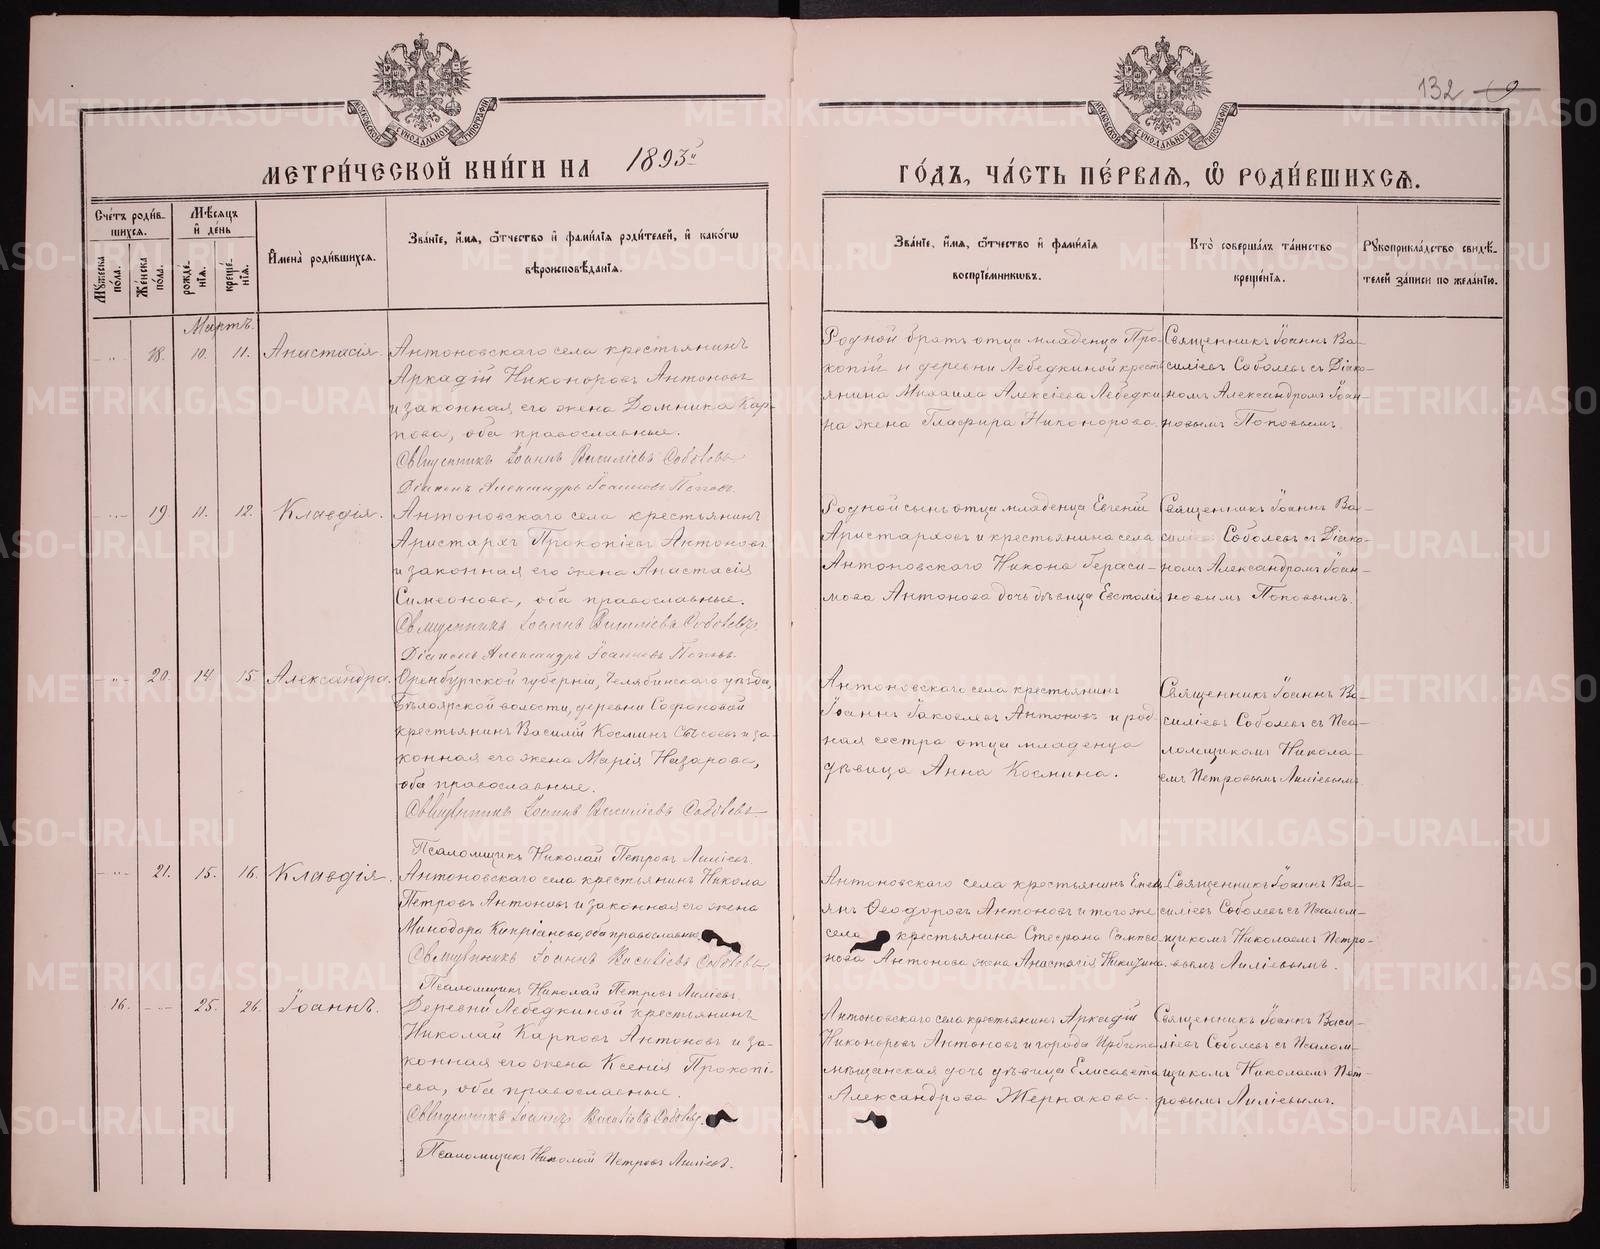 132
МОСКОВСКОЙ СѴНОДАЛЬНОЙ ТИПОГРАФІИ
МОСКОВСКОЙ СѴНОДАЛЬНОЙ ТИПОГРАФІИ
МЕТРИ́ЧЕСКОЙ КНИ́ГИ НА 1893й
ГО́ДЪ, ЧА́СТЬ ПЕ́РВАЯ, Ѡ РОДИ́ВШИХСЯ.
Сче́тъ роди́в-
шихся.
Мѣсяцъ
и҆ де́нь
Му́жеска по́ла.
Же́нска по́ла.
рожде́-
нїѧ.
креще́-
нїѧ.
И҆мена̀ роди́вшихся.
Зва́нїе, и҆́мя, ѻ҆́тчество и҆ фами́лїя роди́телей, и҆ како́гѡ
вѣроисповѣ́данїя.
Зва́нїе, и҆́мя, ѻ҆́тчество и҆ фами́лїя
воспрїе́мниковъ.
Кто̀ соверша́лъ та́инство
креще́нїя.
Рꙋкоприкла́дство свидѣ́-
телей за́писи по жела́нїю.
Мартъ.
18. 10. 11. Анастасія.
Антоновскаго села крестьянинъ
Аркадій Никоноровъ Антоновъ
и законная его жена Домника Кар-
пова, оба православные.
Священникъ Іоаннъ Василіевъ Соболевъ
Діаконъ Александръ Іоанновъ Поповъ.
Родной братъ отца младенца Про-
копій и деревни Лебедкиной кресть
янина Михаила Алексіева Лебедки
на жена Глафира Никонорова.
Священникъ Іоаннъ Ва-
силіевъ Соболевъ съ Діако-
номъ Александромъ Іоан-
новымъ Поповымъ.
19 11. 12. Клавдія.
Антоновскаго села крестьянинъ
Аристархъ Прокопіевъ Антоновъ
и законная его жена Анастасія
Симеонова, оба православные.
Священникъ Іоаннъ Василіевъ Соболевъ.
Діаконъ Александръ Іоанновъ Поповъ.
Родной сынъ отца младенца Евгеній
Аристарховъ и крестьянина села
Антоновскаго Никона Гераси-
мова Антонова дочь дѣвица Евстолія
Священникъ Іоаннъ Ва-
силіевъ Соболевъ съ Діако-
номъ Александромъ Іоан-
новымъ Поповымъ.
20. 14 15. Александра.
Оренбургской губерніи, Челябинскаго уѣзда,
Бѣлоярской волости, деревни Софоновой
крестьянинъ Василій Косминъ Сысоевъ и за-
конная его жена Марія Назарова,
оба православные.
Священникъ Іоаннъ Василіевъ Соболевъ
Псаломщикъ Николай Петровъ Лиліевъ.
Антоновскаго села крестьянинъ
Іоаннъ Іаковлевъ Антоновъ и род-
ная сестра отца младенца
дѣвица Анна Космина.
Священникъ Іоаннъ Ва-
силіевъ Соболевъ съ Пса-
ломщикомъ Никола-
емъ Петровымъ Лиліевымъ
21. 15. 16. Клавдія.
Антоновскаго села крестьянинъ Никола
Петровъ Антоновъ и законная его жена
Минодора Кипріанова, оба православные.
Священникъ Іоаннъ Василіевъ Соболевъ
Псаломщикъ Николай Петровъ Лиліевъ
Антоновскаго села крестьянинъ
янъ Ѳеодоровъ Антоновъ и того же
села крестьянина Стефана
нова Антонова жена Анастасія Никитина.
Священникъ Іоаннъ Ва-
силіевъ Соболевъ съ Псалом-
щикомъ Николаемъ Петро-
вымъ Лиліевымъ.
16. 25. 26. Іоаннъ.
Деревни Лебедкиной крестьянинъ
Николай Карповъ Антоновъ и за-
конная его жена Ксенія Прокопі-
ева, оба православные.
Священникъ Іоаннъ Василіевъ Соболевъ.
Псаломщикъ Николай Петровъ Лиліевъ.
Антоновскаго села крестьянинъ Аркадій
Никоноровъ Антоновъ и города Ирбита
мѣщанская дочь дѣвица Елисавета
Александрова Жернакова.
Священникъ Іоаннъ Васи-
ліевъ Соболевъ съ Псалом-
щикомъ Николаемъ Пет-
ровымъ Лиліевымъ.
METRIKI.GASO-URAL.RU